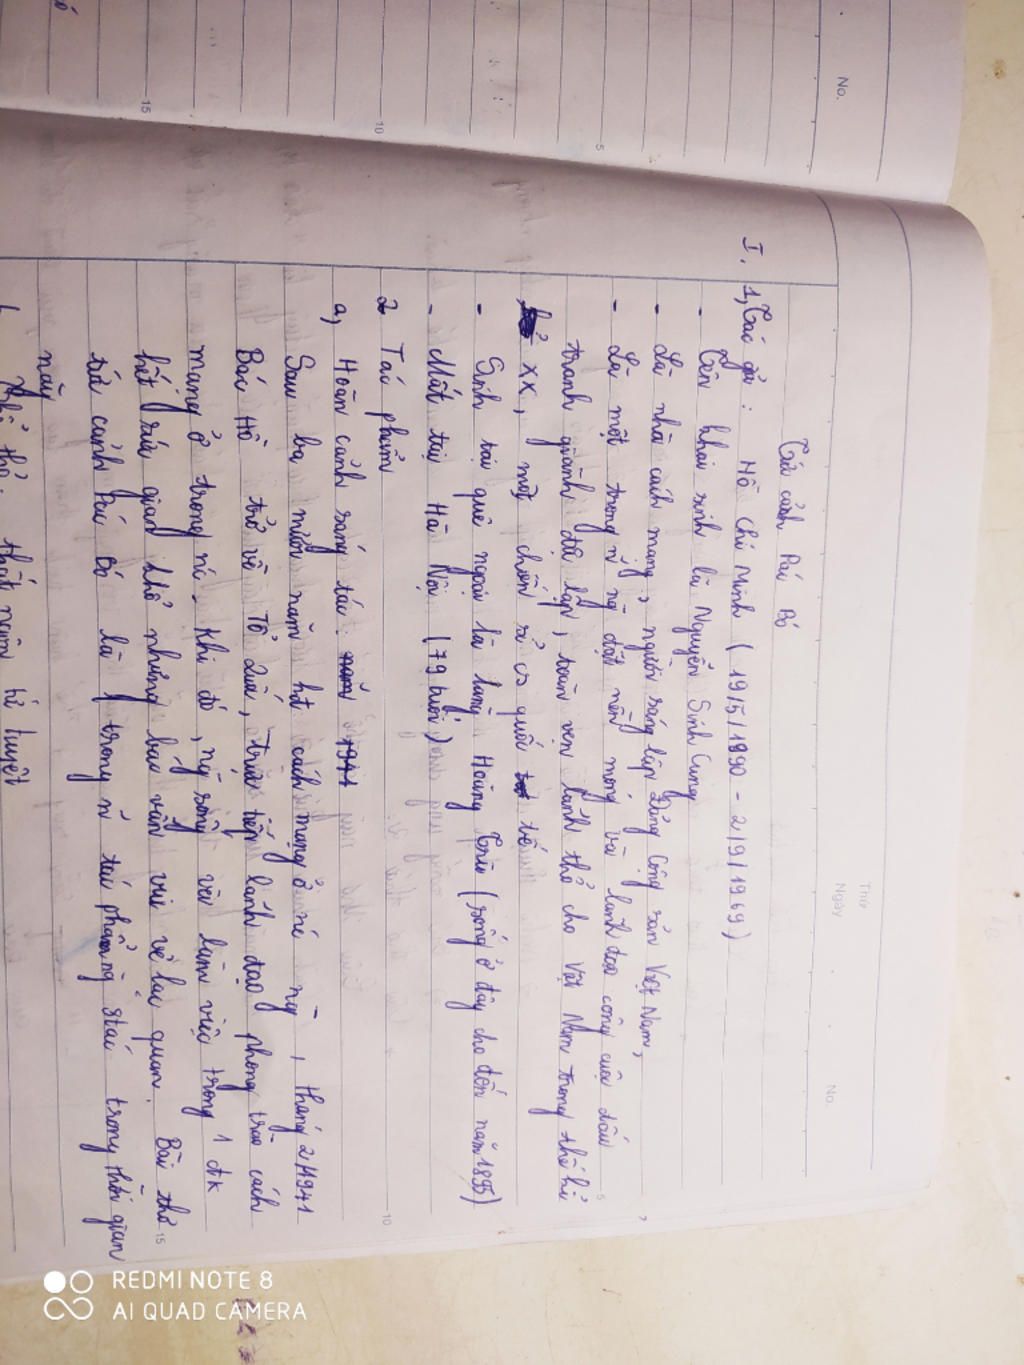 Thứ
Ngày
No.
Tức cảnh Pác Bó
I. 1, Tác giả : Hồ Chí Minh ( 19/5/1890 - 2/9/1969)
- Tên khai sinh là Nguyễn Sinh Cung
- Là nhà cách mạng, người sáng lập Đảng Cộng sản Việt Nam,
- Là một trong ~ ng đặt nền móng và lãnh đạo công cuộc đấu
tranh giành độc lập, toàn vẹn lãnh thổ cho Việt Nam trong thế kỉ
XX, một chiến sĩ cs quốc tế
- Sinh tại quê ngoại là làng Hoàng Trù (sống ở đây cho đến năm 1895)
- Mất tại Hà Nội (79 tuổi)
2 Tác phẩm
a, Hoàn cảnh sáng tác: năm 1941
Sau ba mươi năm hđ cách mạng ở nc ng , tháng 2/1941
Bác Hồ trở về Tổ Quốc, trực tiếp lãnh đạo phong trào cách
mạng ở trong nc. Khi đó, ng sống và làm việc trong 1 đ/k
hết sức gian khổ nhưng Bác vẫn vui vẻ lạc quan. Bài thơ
tức cảnh Pác Bó là 1 trong ~ tác phẩm ng stác trong thời gian
này
thể thơ: thất ngôn tứ tuyệt
No.
5
10
15
5
10
15
REDMI NOTE 8
AI QUAD CAMERA